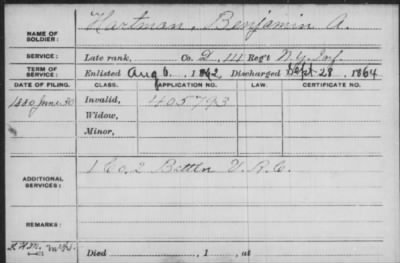 NAME OF SOLDIER: Hartman, Benjamin A.
SERVICE: Late rank, Co. D, 111 Reg't N.Y. Inf.
TERM OF SERVICE: Enlisted Aug 6, 1862 Discharged Sept 28, 1864
DATE OF FILING. CLASS. APPLICATION NO. LAW. CERTIFICATE NO.
1880 June 30 Invalid, 405793
Widow,
Minor,
ADDITIONAL SERVICES: 1 Co. 2 Battln V.R.C.
REMARKS:
Died , 1 , at